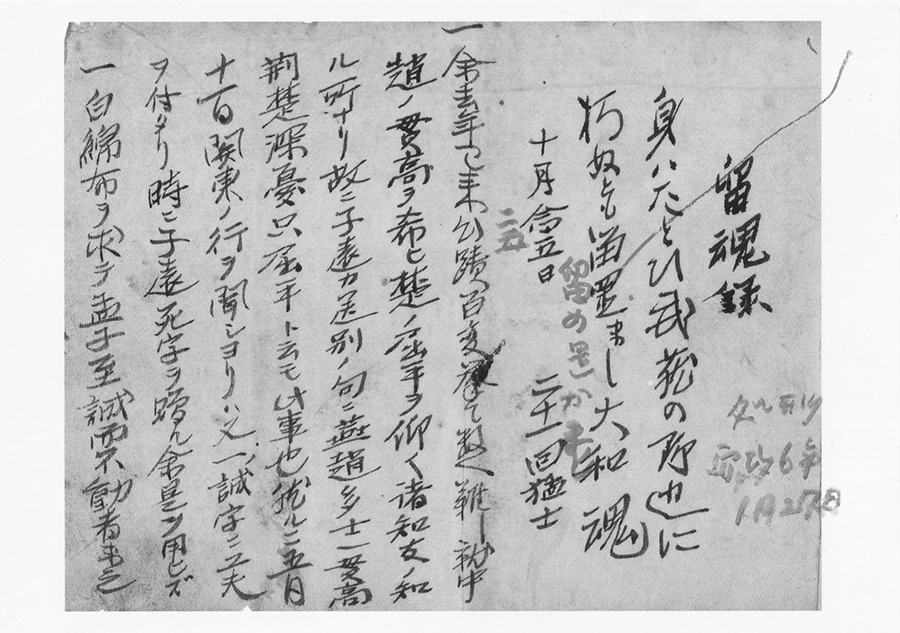 留魂録
身ハたとひ武蔵の野辺に
朽ぬとも留置まし大和魂
十月念五日 二十一回猛士
一 余去年已来心蹟百変挙て数へ難し就中
趙ノ貫高ヲ希ヒ楚ノ屈平ヲ仰ク諸知友ノ知
ル所ナリ故ニ子遠カ送別ノ句ニ燕趙多士一貫高
荆楚深憂只屈平ト云モ此事也然ルニ五月
十一日関東ノ行ヲ聞シヨリハ又一誠字ニ工夫
ヲ付タリ時ニ子遠死字ヲ贈ル余是ヲ用ヒズ
一 白綿布ヲ求テ孟子至誠而不動者未之
二五
留め置か
処刑
安政6年
1月27日